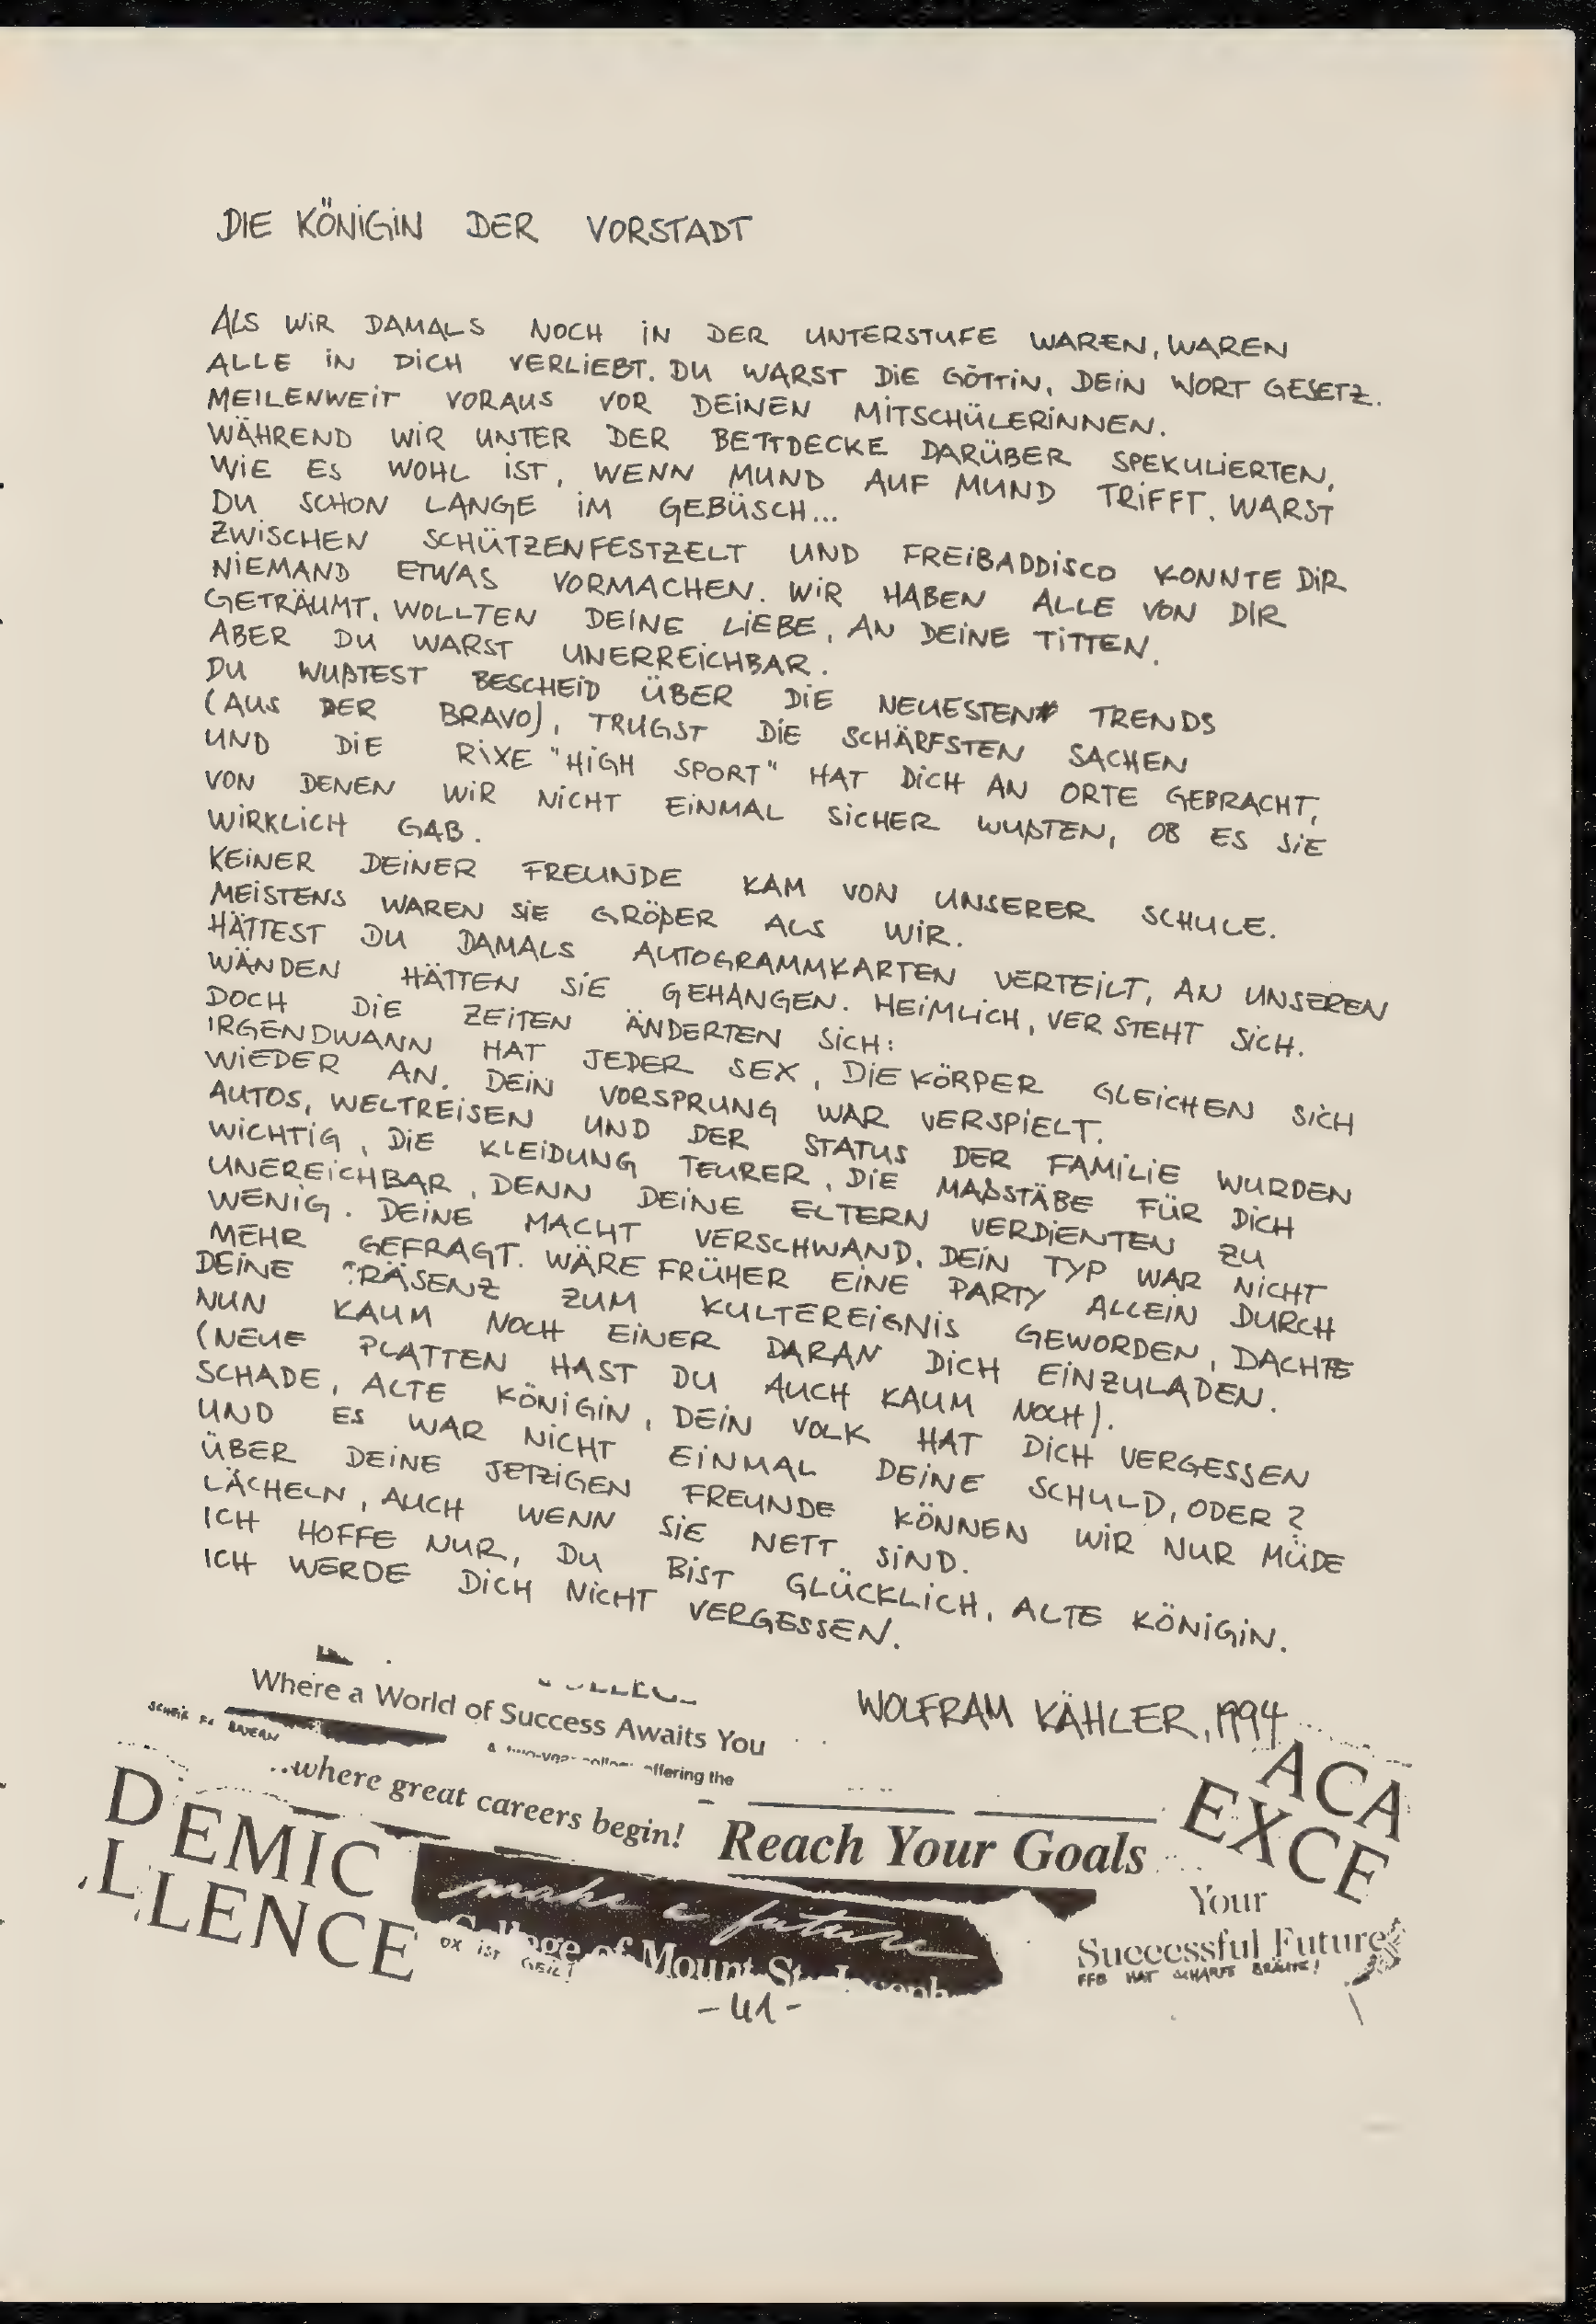 DIE KÖNIGIN DER VORSTADT
ALS WIR DAMALS NOCH IN DER UNTERSTUFE WAREN, WAREN
ALLE IN DICH VERLIEBT. DU WARST DIE GÖTTIN, DEIN WORT GESETZ.
MEILENWEIT VORAUS VOR DEINEN MITSCHÜLERINNEN.
WÄHREND WIR UNTER DER BETTDECKE DARÜBER SPEKULIERTEN,
WIE ES WOHL IST, WENN MUND AUF MUND TRIFFT, WARST
DU SCHON LANGE IM GEBÜSCH...
ZWISCHEN SCHÜTZENFESTZELT UND FREIBADDISCO KONNTE DIR
NIEMAND ETWAS VORMACHEN. WIR HABEN ALLE VON DIR
GETRÄUMT, WOLLTEN DEINE LIEBE, AN DEINE TITTEN.
ABER DU WARST UNERREICHBAR.
DU WUßTEST BESCHEID ÜBER DIE NEUESTEN TRENDS
(AUS DER BRAVO), TRUGST DIE SCHÄRFSTEN SACHEN
UND DIE RIXE "HIGH SPORT" HAT DICH AN ORTE GEBRACHT,
VON DENEN WIR NICHT EINMAL SICHER WUßTEN, OB ES SIE
WIRKLICH GAB.
KEINER DEINER FREUNDE KAM VON UNSERER SCHULE.
MEISTENS WAREN SIE GRÖßER ALS WIR.
HÄTTEST DU DAMALS AUTOGRAMMKARTEN VERTEILT, AN UNSEREN
WÄNDEN HÄTTEN SIE GEHANGEN. HEIMLICH, VERSTEHT SICH.
DOCH DIE ZEITEN ÄNDERTEN SICH:
IRGENDWANN HAT JEDER SEX, DIE KÖRPER GLEICHEN SICH
WIEDER AN. DEIN VORSPRUNG WAR VERSPIELT.
AUTOS, WELTREISEN UND DER STATUS DER FAMILIE WURDEN
WICHTIG, DIE KLEIDUNG TEURER, DIE MAßSTÄBE FÜR DICH
UNEREICHBAR, DENN DEINE ELTERN VERDIENTEN ZU
WENIG. DEINE MACHT VERSCHWAND, DEIN TYP WAR NICHT
MEHR GEFRAGT. WÄRE FRÜHER EINE PARTY ALLEIN DURCH
DEINE PRÄSENZ ZUM KULTEREIGNIS GEWORDEN, DACHTE
NUN KAUM NOCH EINER DARAN DICH EINZULADEN.
(NEUE PLATTEN HAST DU AUCH KAUM NOCH).
SCHADE, ALTE KÖNIGIN, DEIN VOLK HAT DICH VERGESSEN
UND ES WAR NICHT EINMAL DEINE SCHULD, ODER?
ÜBER DEINE JETZIGEN FREUNDE KÖNNEN WIR NUR MÜDE
LÄCHELN, AUCH WENN SIE NETT SIND.
ICH HOFFE NUR, DU BIST GLÜCKLICH, ALTE KÖNIGIN.
ICH WERDE DICH NICHT VERGESSEN.
WOLFRAM KÄHLER, 1994
Where a World of Success Awaits You
BAYERN
offering the
..where great careers begin!
Reach Your Goals
ACA
EXCE
DEMIC
LLENCE
make a future
College of Mount St. Joseph
OX IST GEIL!
Your
Successful Future
FFB HAT SCHARFE BRÄUTE!
-41-